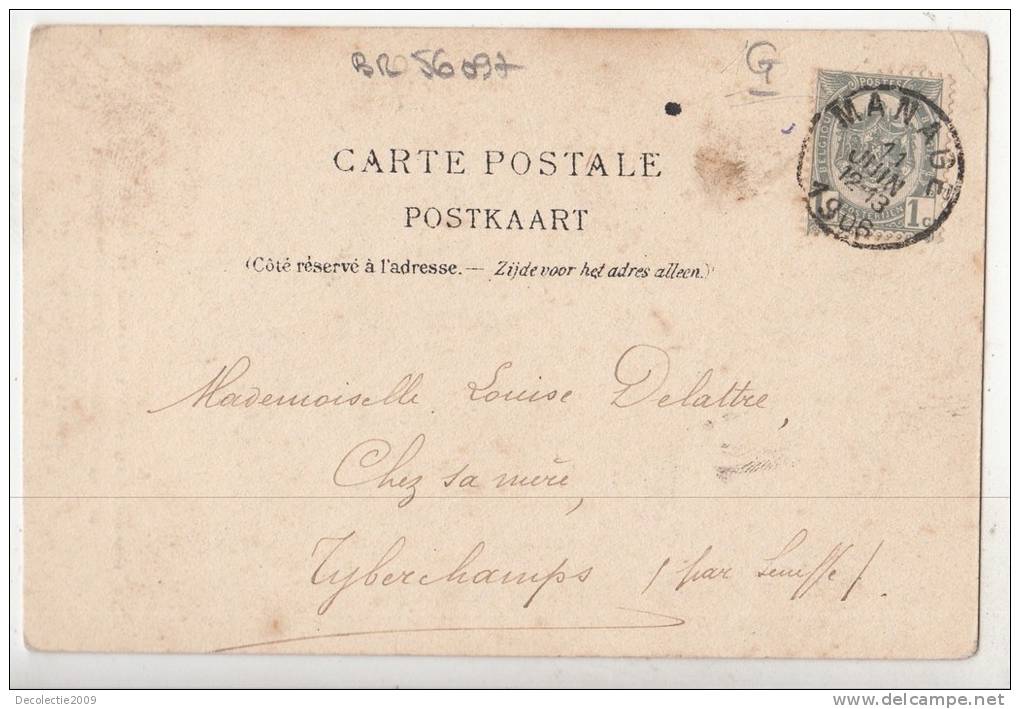 BR 56097
G
POSTES
BELGIQUE
MANAGE
11
JUIN
12-13
1906
1c
CARTE POSTALE
POSTKAART
(Côté réservé à l'adresse. — Zijde voor het adres alleen.)
Mademoiselle Louise Delattre,
Chez sa mère,
Tyberchamps / par Seneffe /
Decolectie2009
www.delcampe.net